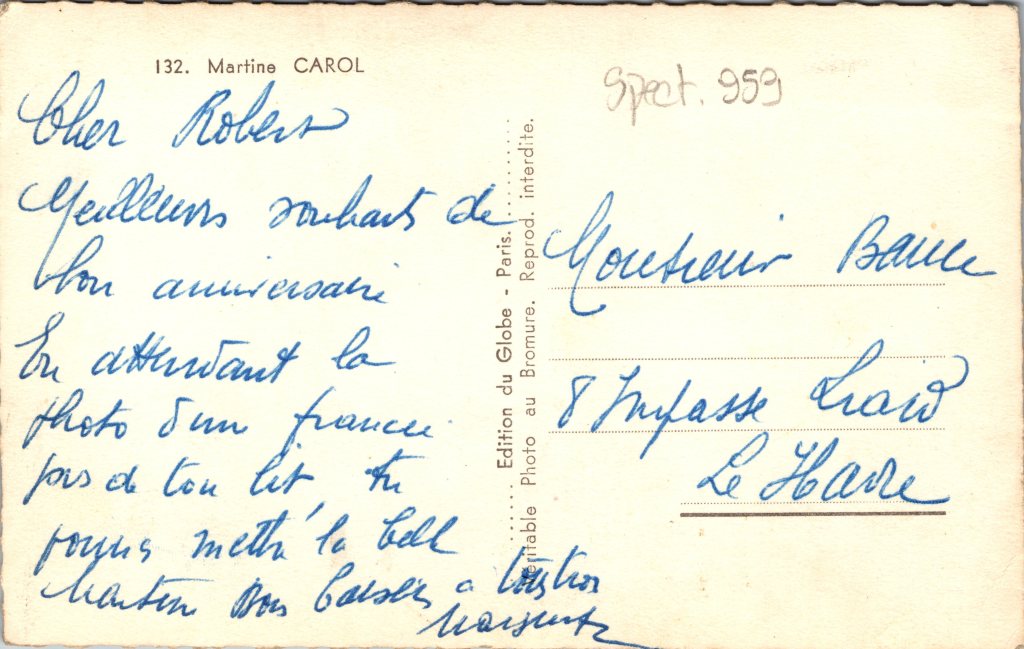 132. Martine CAROL
Cher Robert
Meilleurs souhaits de
bon anniversaire
En attendant la
photo d'un
pas de ton lit tu
mettre la belle
Martine Bons baisers a tous trois
Edition du Globe - Paris.
Véritable Photo au Bromure. Reprod. interdite.
Spect. 959
Monsieur
8 Impasse
Le Havre